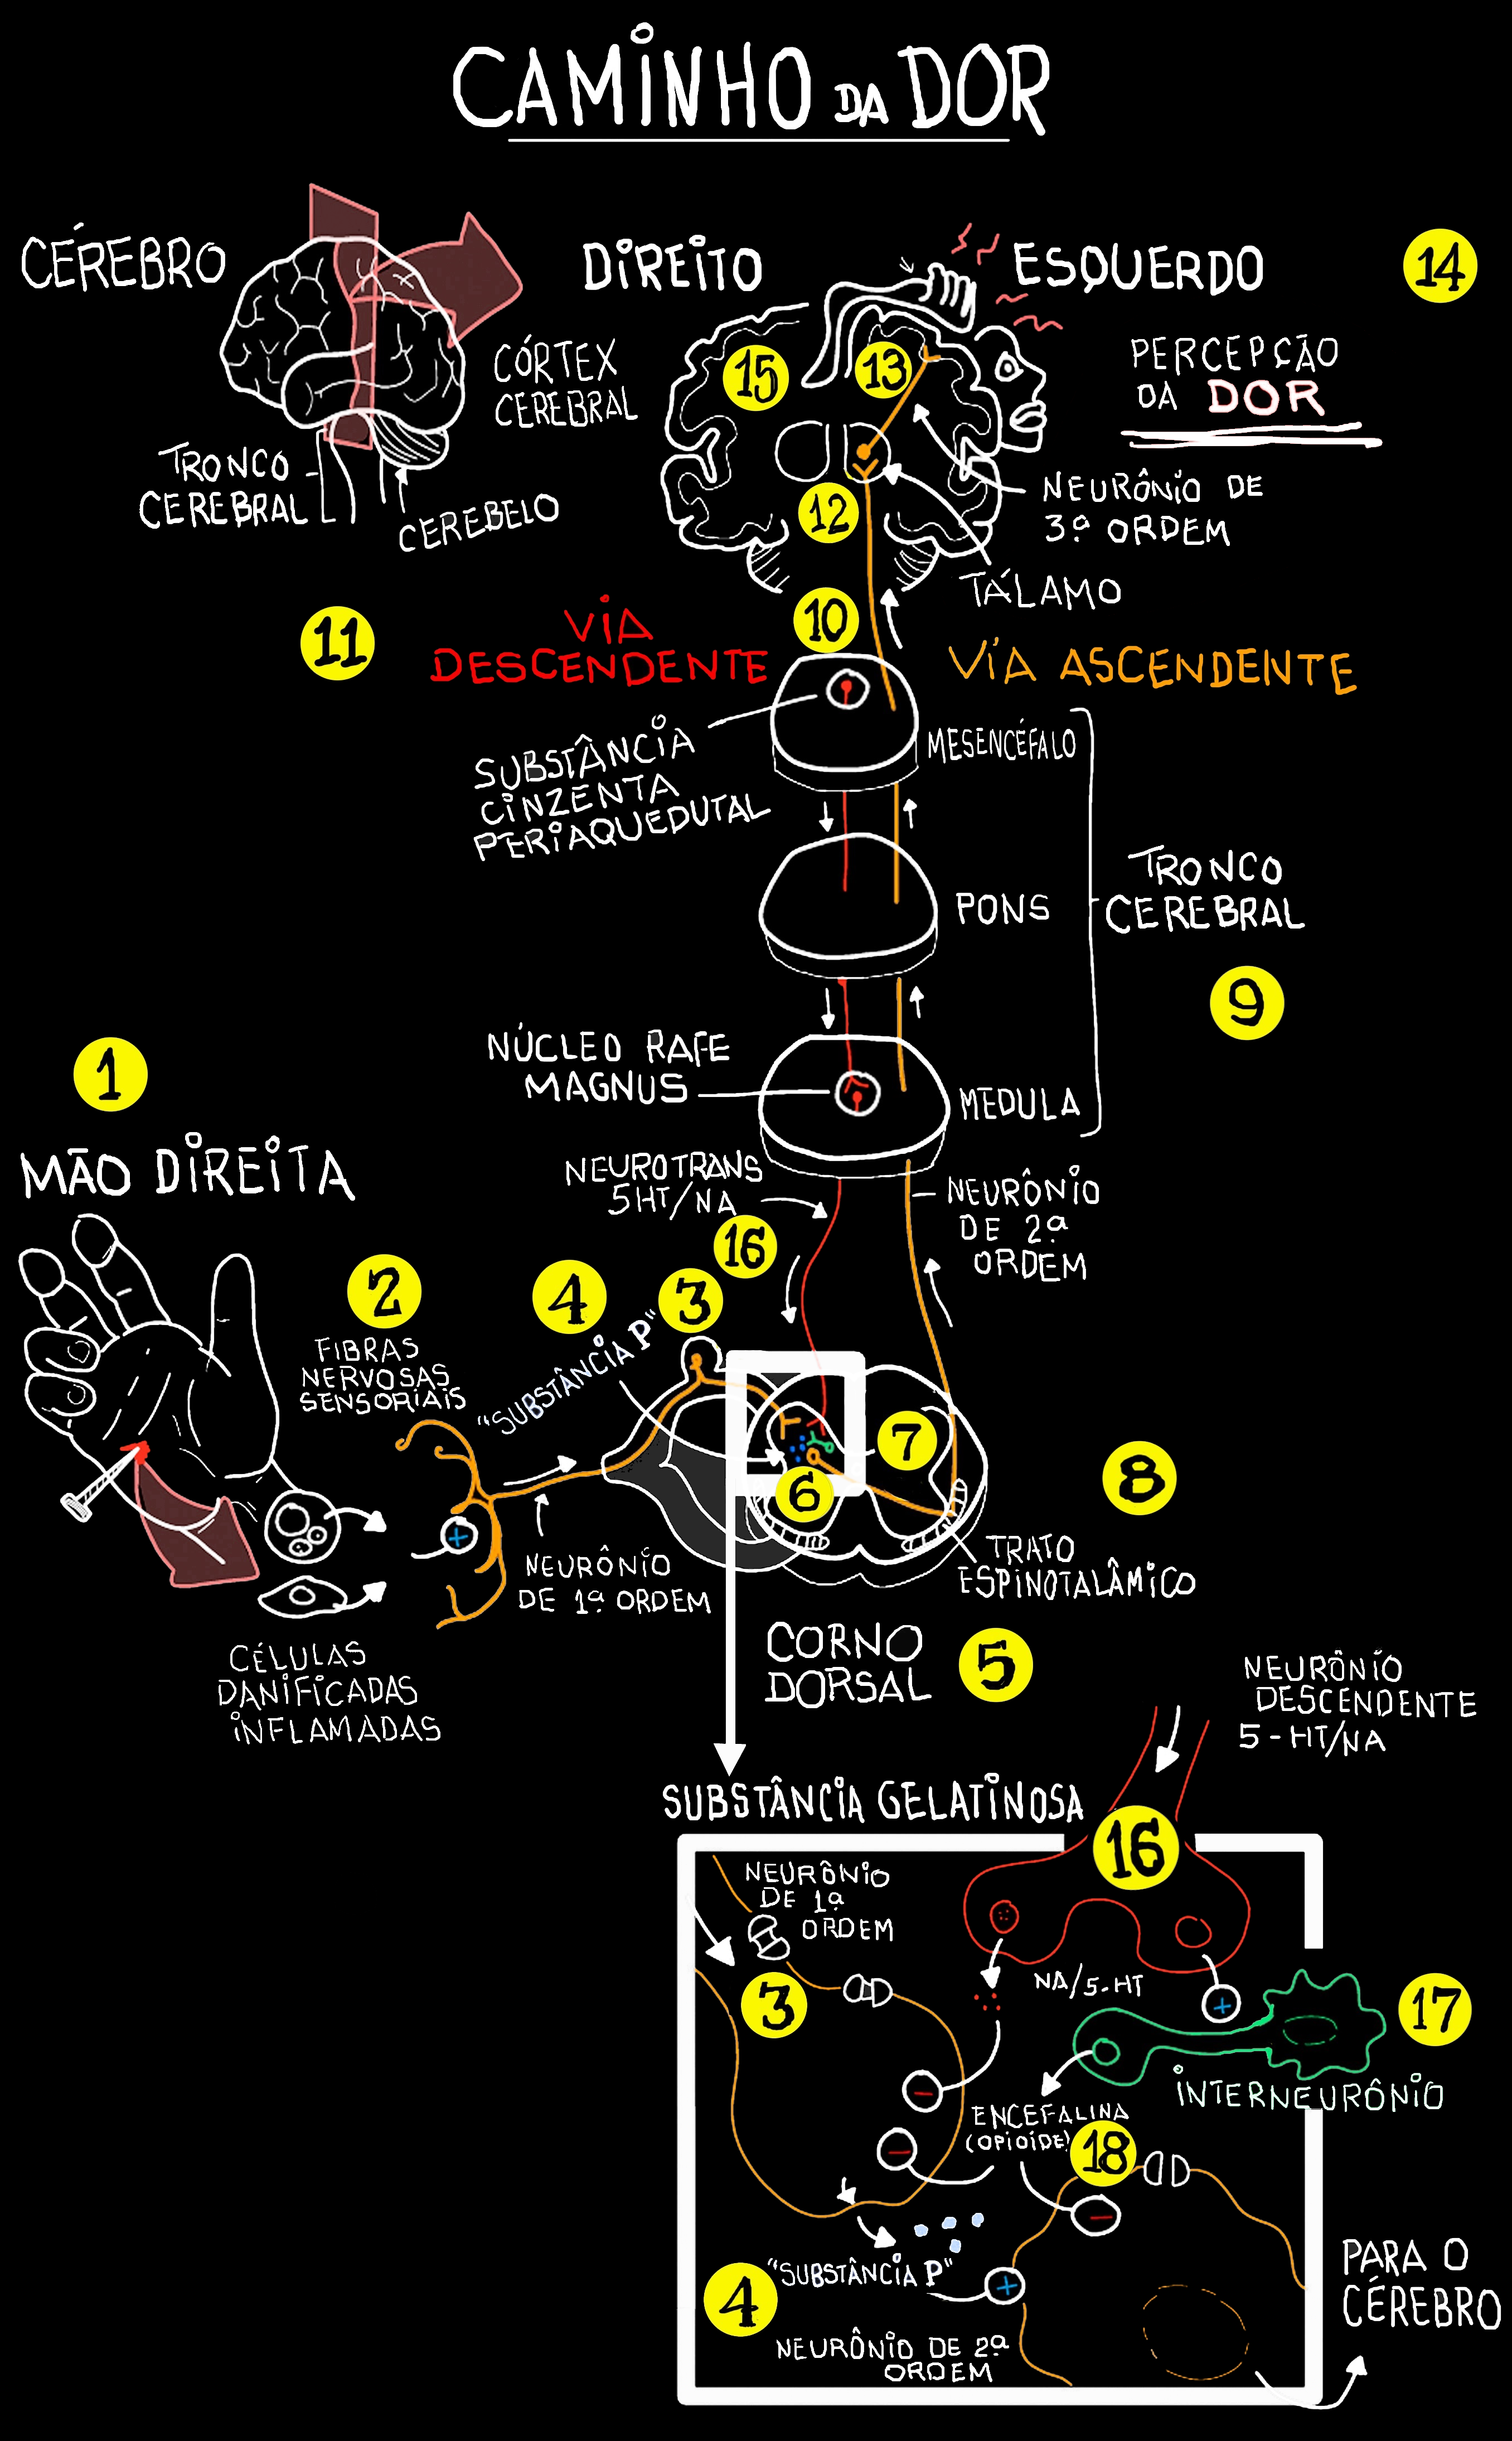 CAMINHO DA DOR
CÉREBRO
DIREITO
ESQUERDO
14
CÓRTEX
CEREBRAL
15
13
PERCEPÇÃO
DA DOR
TRONCO
CEREBRAL
CEREBELO
12
NEURÔNIO DE
3ª ORDEM
TÁLAMO
11
VIA
DESCENDENTE
10
VÍA ASCENDENTE
SUBSTÂNCIA
CINZENTA
PERIAQUEDUTAL
MESENCÉFALO
PONS
TRONCO
CEREBRAL
9
NÚCLEO RAFE
MAGNUS
MEDULA
1
MÃO DIREITA
NEUROTRANS
5HT/NA
16
NEURÔNIO
DE 2ª
ORDEM
2
FIBRAS
NERVOSAS
SENSORIAIS
4
"SUBSTÂNCIA P"
3
7
6
8
+
NEURÔNIO
DE 1ª ORDEM
TRATO
ESPINOTALÂMICO
CÉLULAS
DANIFICADAS
INFLAMADAS
CORNO
DORSAL
5
NEURÔNIO
DESCENDENTE
5-HT/NA
SUBSTÂNCIA GELATINOSA
16
NEURÔNIO
DE 1ª
ORDEM
3
NA/5-HT
+
17
INTERNEURÔNIO
-
ENCEFALINA
(OPIOÍDE)
18
-
-
"SUBSTÂNCIA P"
+
4
NEURÔNIO DE 2ª
ORDEM
PARA O
CÉREBRO